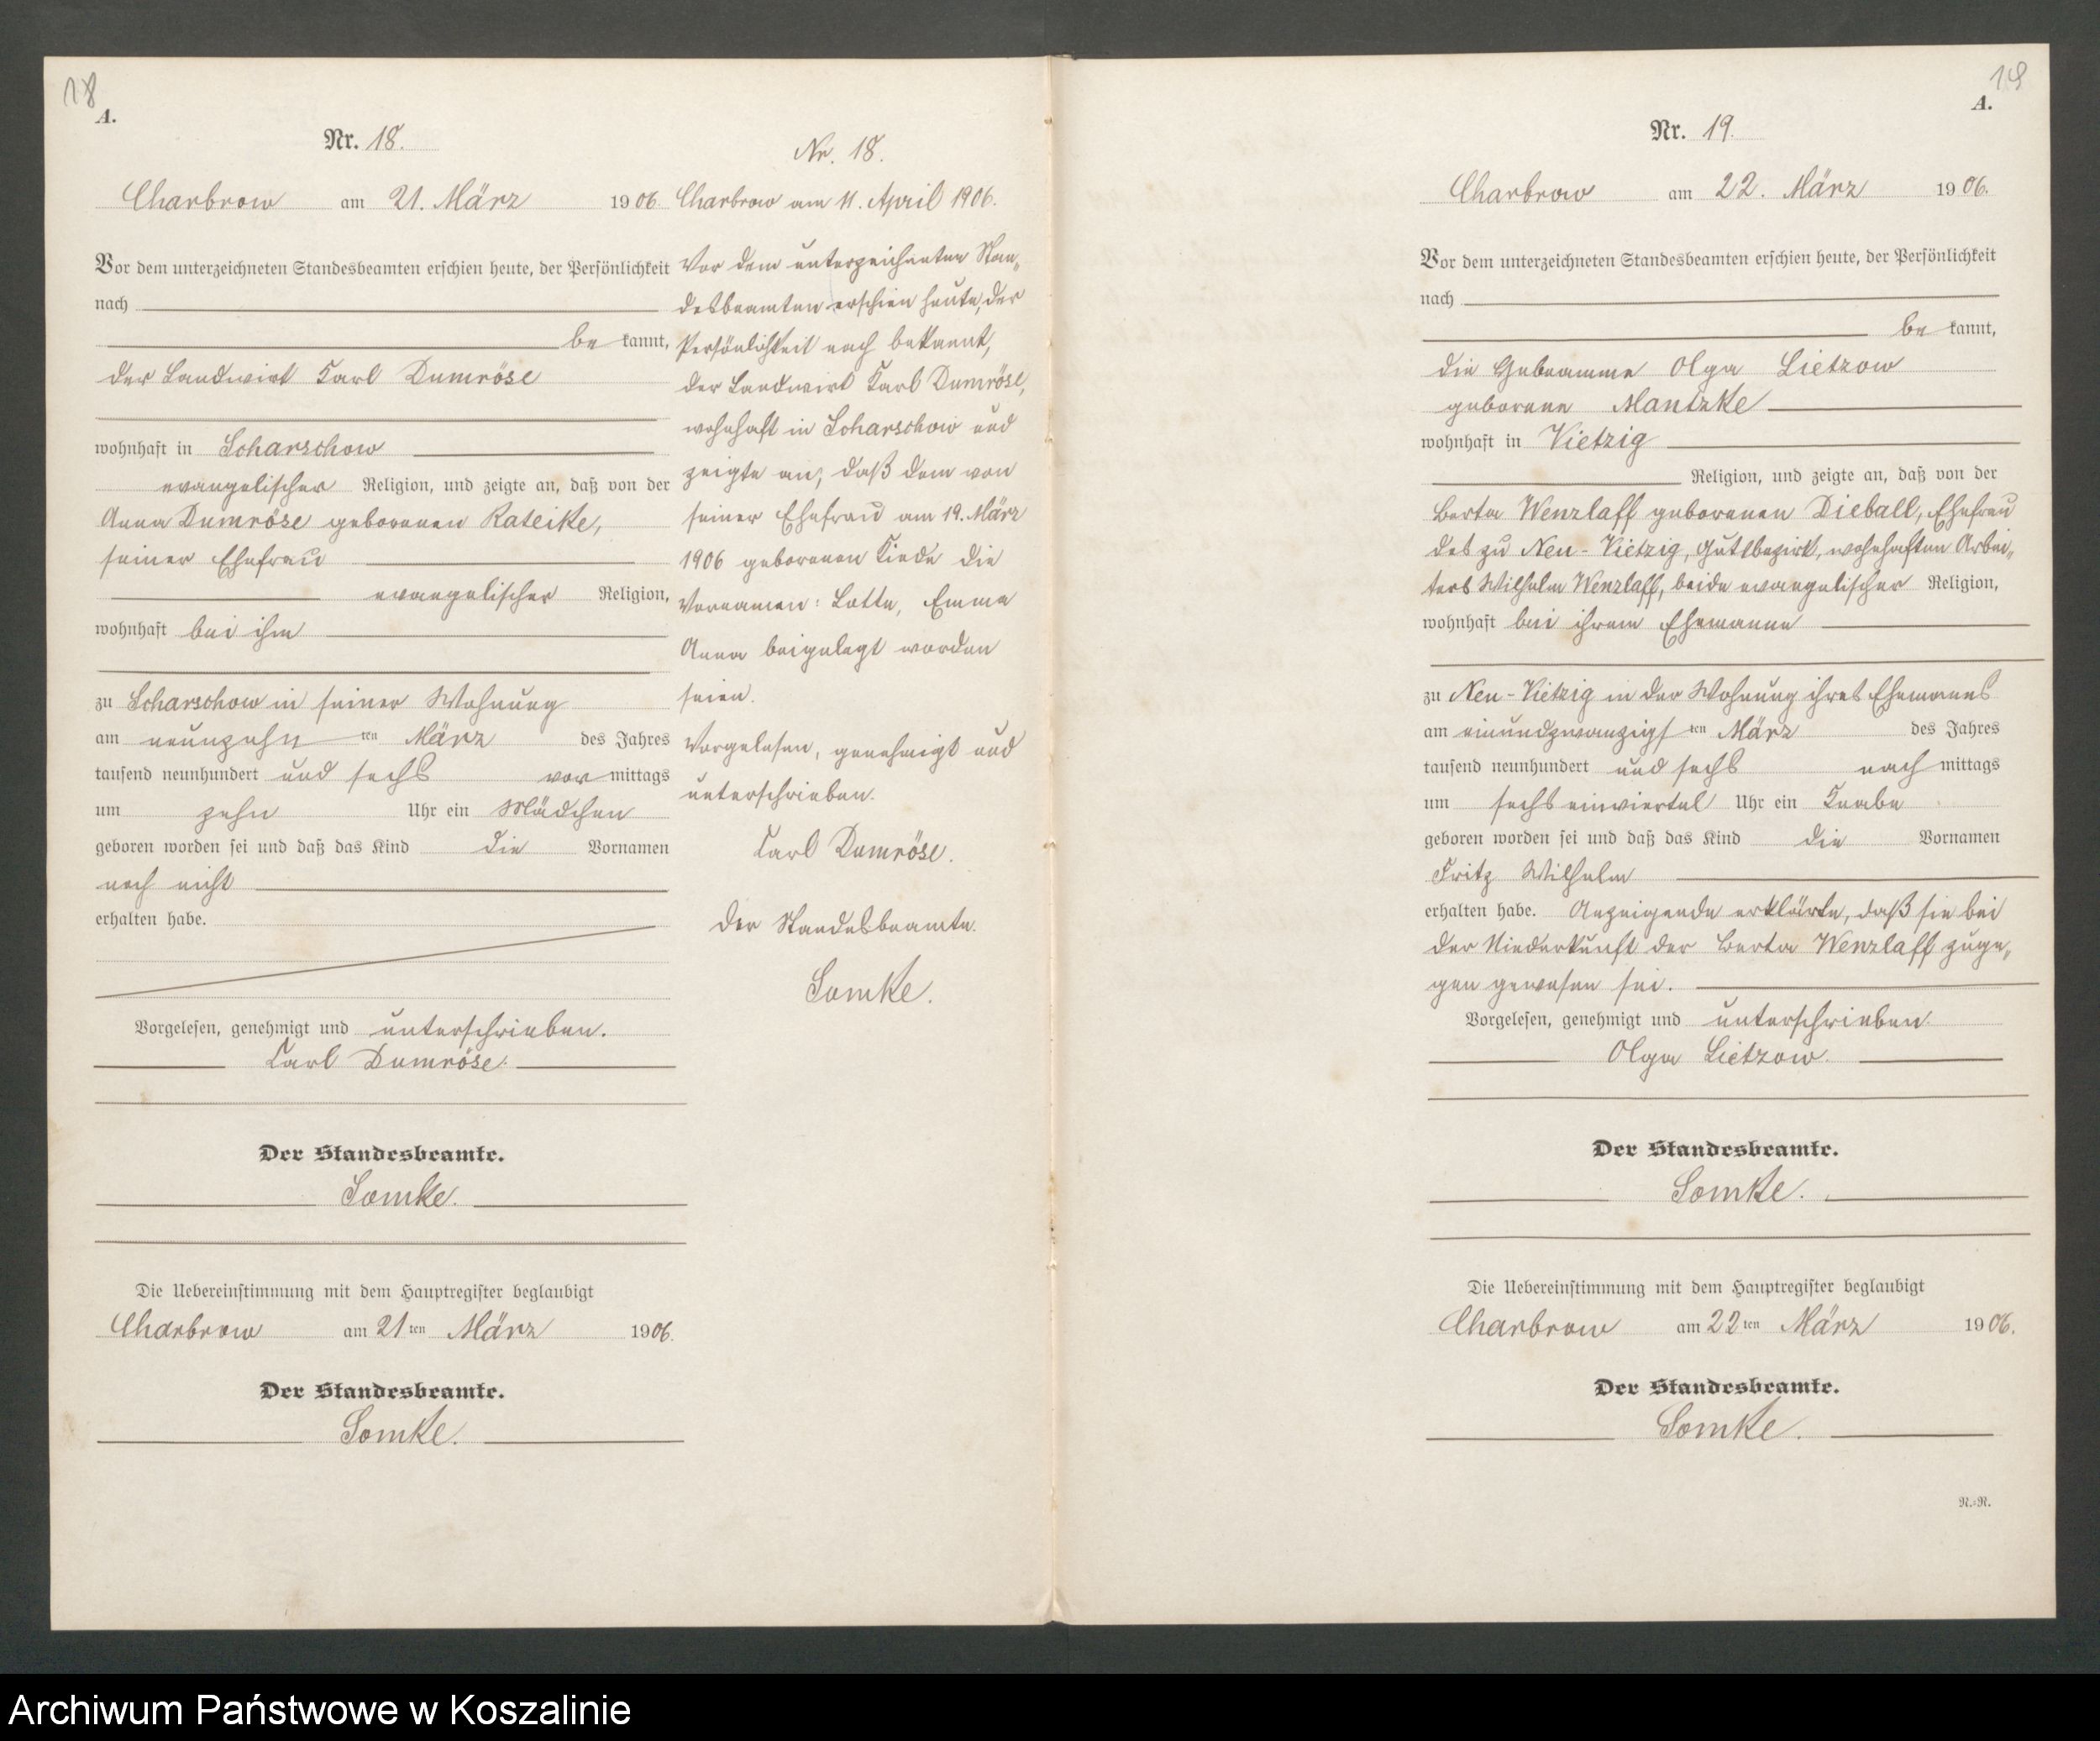 18
A.
Nr. 18.
Charbrow am 21. März 1906
Vor dem unterzeichneten Standesbeamten erschien heute, der Persönlichkeit
nach
be kannt,
der Landwirt Karl Dumröse
wohnhaft in Scharschow
evangelischer Religion, und zeigte an, daß von der
Anna Dumröse geborenen Rateike,
seiner Ehefrau
evangelischer Religion,
wohnhaft bei ihm
zu Scharschow in seiner Wohnung
am neunzehn ten März des Jahres
tausend neunhundert und sechs vor mittags
um zehn Uhr ein Mädchen
geboren worden sei und daß das Kind die Vornamen
noch nicht
erhalten habe.
Vorgelesen, genehmigt und unterschrieben.
Carl Dumröse.
Der Standesbeamte.
Somke.
Die Uebereinstimmung mit dem Hauptregister beglaubigt
Charbrow am 21 ten März 1906.
Der Standesbeamte.
Somke.
Nr. 18.
Charbrow am 11. April 1906.
Vor dem unterzeichneten Stan„
desbeamten erschien heute, der
Persönlichkeit nach bekannt,
der Landwirt Karl Dumröse,
wohnhaft in Scharschow und
zeigte an, daß dem von
seiner Ehefrau am 19. März
1906 geborenen Kinde die
Vornamen: Lotte, Emma
Anna beigelegt worden
seien.
Vorgelesen, genehmigt und
unterschrieben.
Carl Dumröse.
Der Standesbeamte.
Somke.
19
A.
Nr. 19.
Charbrow am 22. März 1906.
Vor dem unterzeichneten Standesbeamten erschien heute, der Persönlichkeit
nach
be kannt,
die Hebeamme Olga Lietzow
geborene Mantzke
wohnhaft in Vietzig
Religion, und zeigte an, daß von der
Berta Wenzlaff geborenen Dieball, Ehefrau
des zu Neu-Vietzig, Gutsbezirk, wohnhaften Arbei„
ters Wilhelm Wenzlaff, beide evangelischer Religion,
wohnhaft bei ihrem Ehemanne
zu Neu-Vietzig in der Wohnung ihres Ehemanns
am einundzwanzigs ten März des Jahres
tausend neunhundert und sechs nach mittags
um sechs einviertel Uhr ein Knabe
geboren worden sei und daß das Kind die Vornamen
Fritz Wilhelm
erhalten habe. Anzeigende erklärte, daß sie bei
der Niederkunft der Berta Wenzlaff zuge„
gen gewesen sei.
Vorgelesen, genehmigt und unterschrieben.
Olga Lietzow.
Der Standesbeamte.
Somke.
Die Uebereinstimmung mit dem Hauptregister beglaubigt
Charbrow am 22 ten März 1906.
Der Standesbeamte.
Somke.
N.=N.
Archiwum Państwowe w Koszalinie